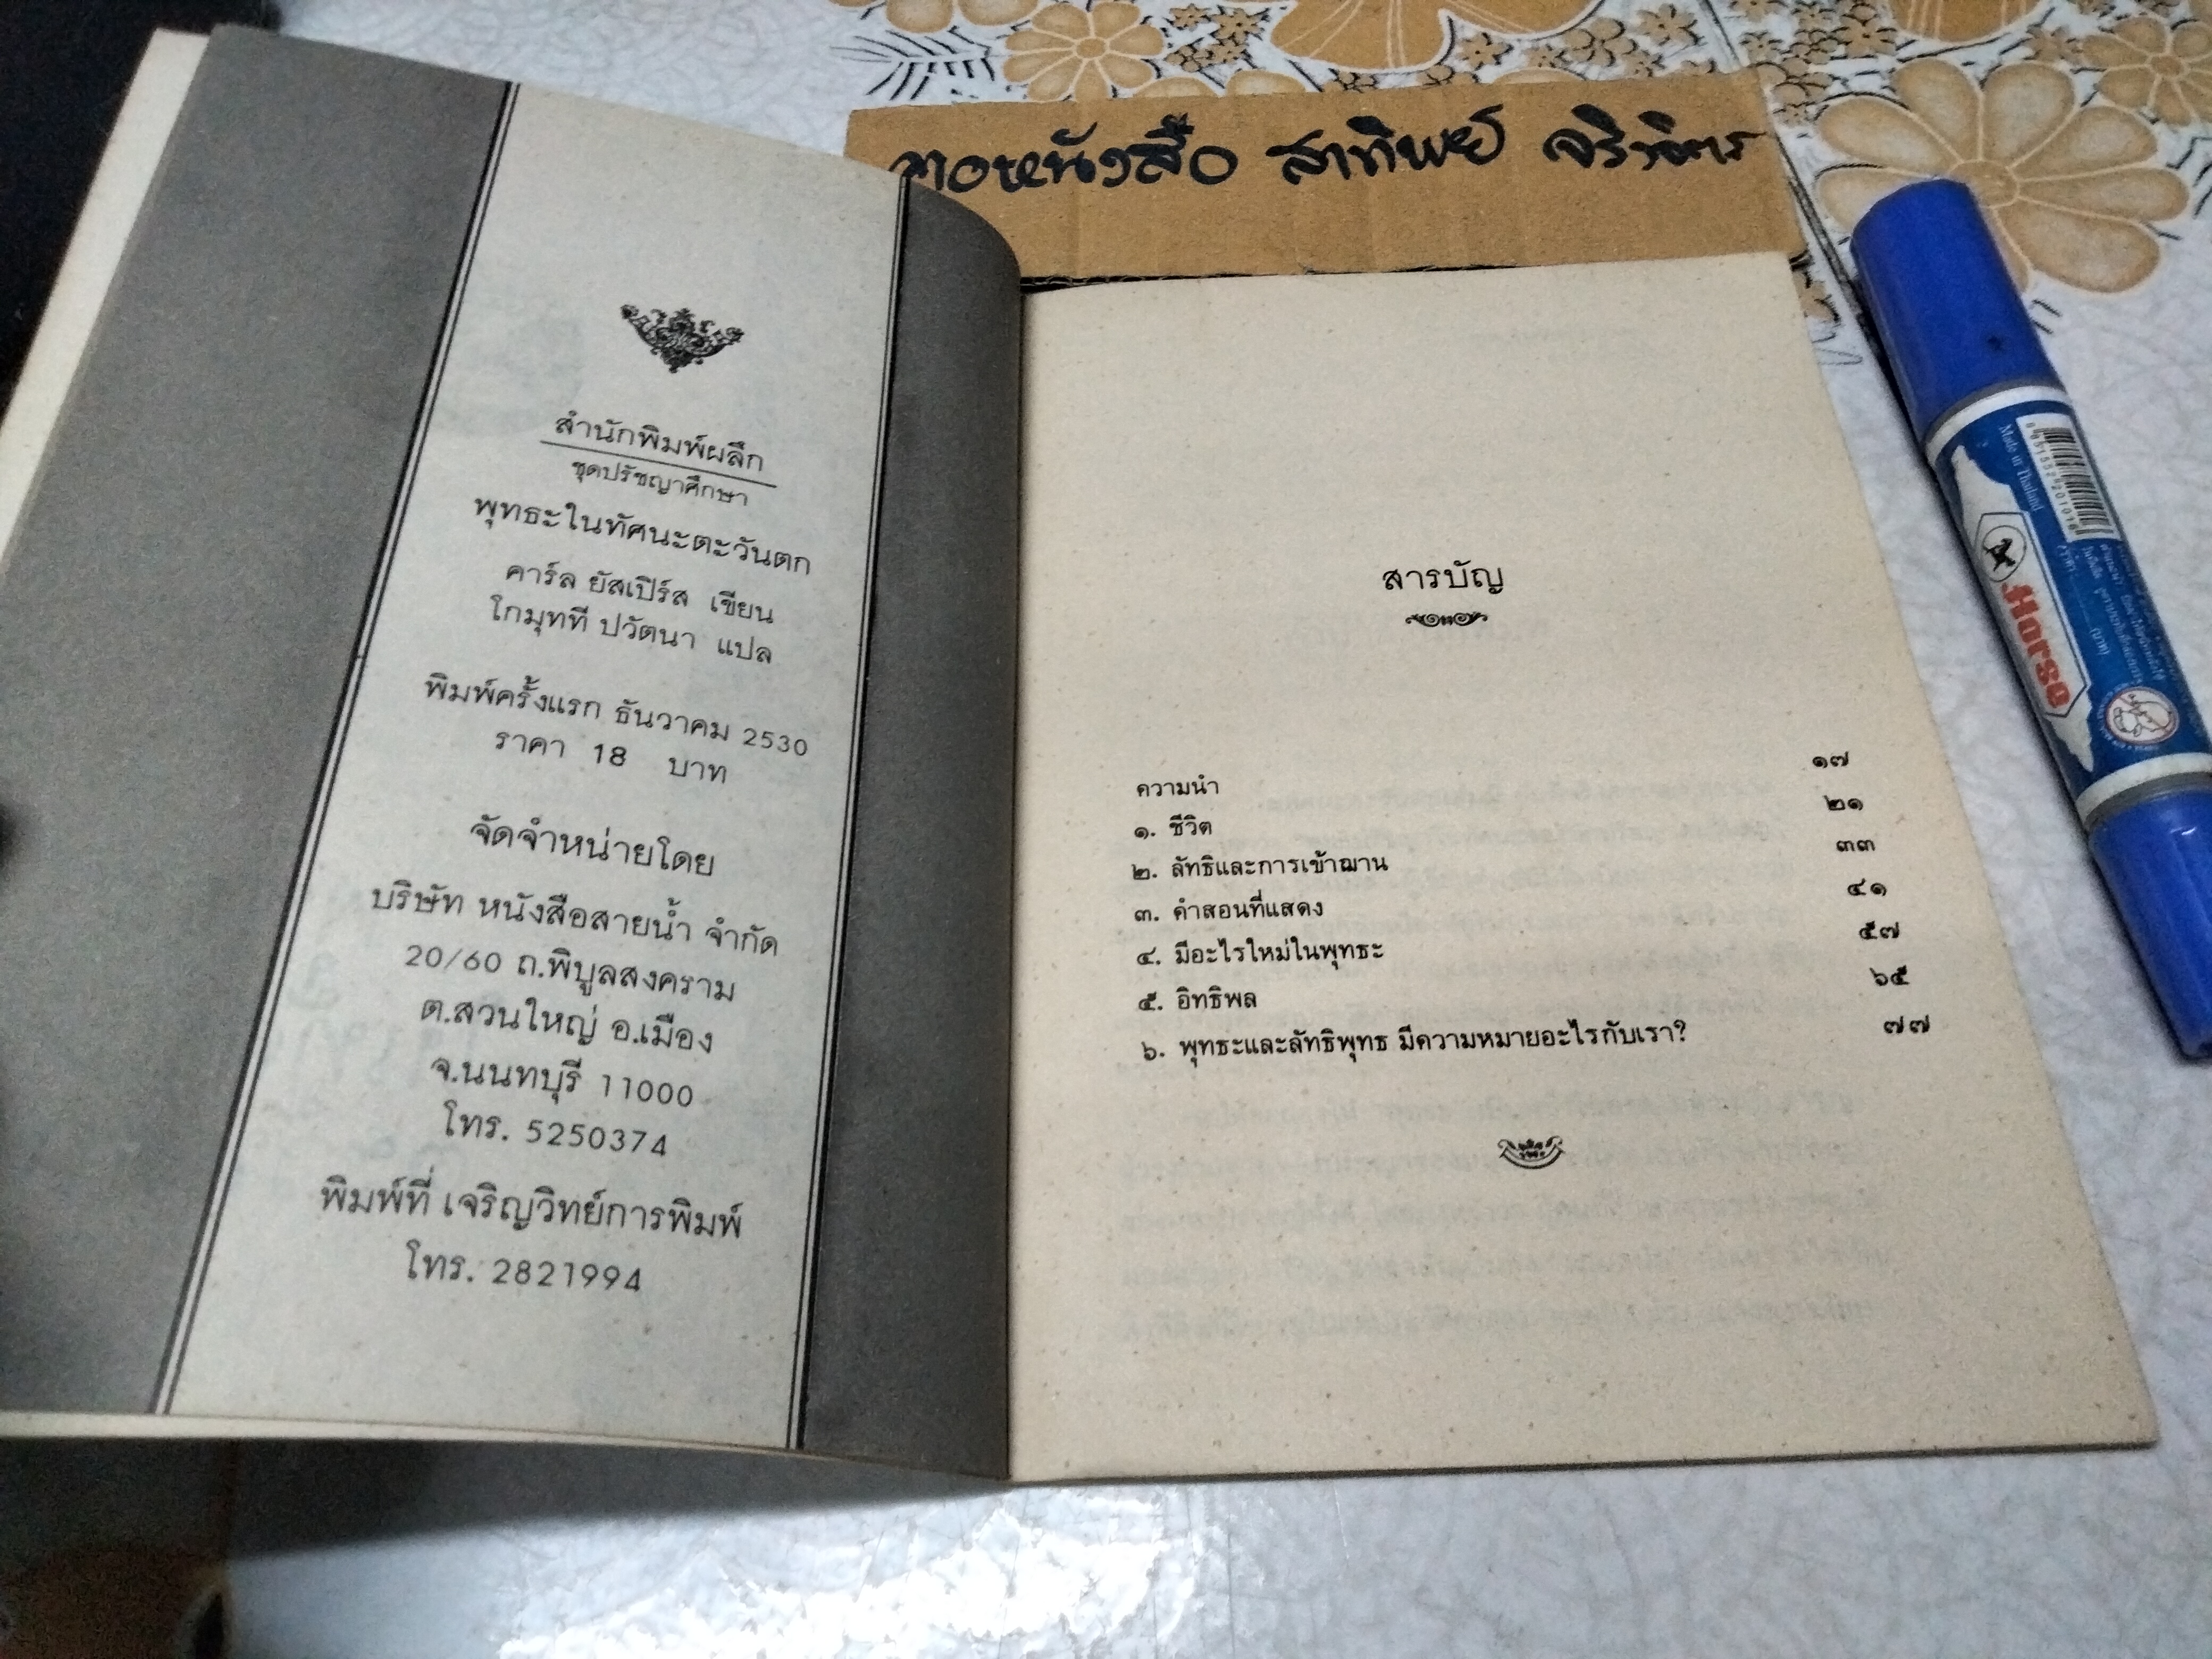 สำนักพิมพ์ผลึก
ชุดปรัชญาศึกษา
พุทธะในทัศนะตะวันตก
คาร์ล ยัสเปิร์ส เขียน
โกมุทที ปวัตนา แปล
พิมพ์ครั้งแรก ธันวาคม 2530
ราคา 18 บาท
จัดจำหน่ายโดย
บริษัท หนังสือสายน้ำ จำกัด
20/60 ถ.พิบูลสงคราม
ต.สวนใหญ่ อ.เมือง
จ.นนทบุรี 11000
โทร. 5250374
พิมพ์ที่ เจริญวิทย์การพิมพ์
โทร. 2821994
หนังสือ สาทิพย์
สารบัญ
ความนำ ๑๗
๑. ชีวิต ๒๑
๒. ลัทธิและการเข้าฌาน ๓๓
๓. คำสอนที่แสดง ๔๑
๔. มีอะไรใหม่ในพุทธะ ๕๗
๕. อิทธิพล ๖๕
๖. พุทธะและลัทธิพุทธ มีความหมายอะไรกับเรา? ๗๗
Made in Thailand
8 851552 201016
Horse
(บาท)